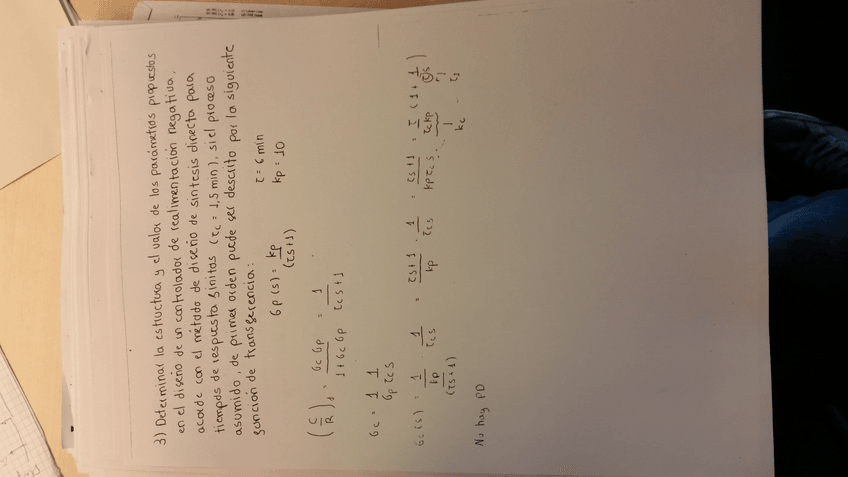 3) Determinar la estructura y el valor de los parámetros propuestos
en el diseño de un controlador de realimentación negativa,
acorde con el método de diseño de síntesis directa para
tiempos de respuesta finitas (τc = 1,5 min), si el proceso
asumido, de primer orden puede ser descrito por la siguiente
función de transferencia:
Gp(s) = kp / (τs+1) τ = 6 min
kp = 10
(C/R)d = Gc Gp / (1 + Gc Gp) = 1 / (τc s + 1)
Gc = 1/Gp 1/(τc s)
Gc(s) = 1 / (kp/(τs+1)) · 1/(τc s) = (τs+1)/kp · 1/(τc s) = (τs+1)/(kp τc s) = τ/(τc kp) (1 + 1/(τs))
kc τI
No hay PD